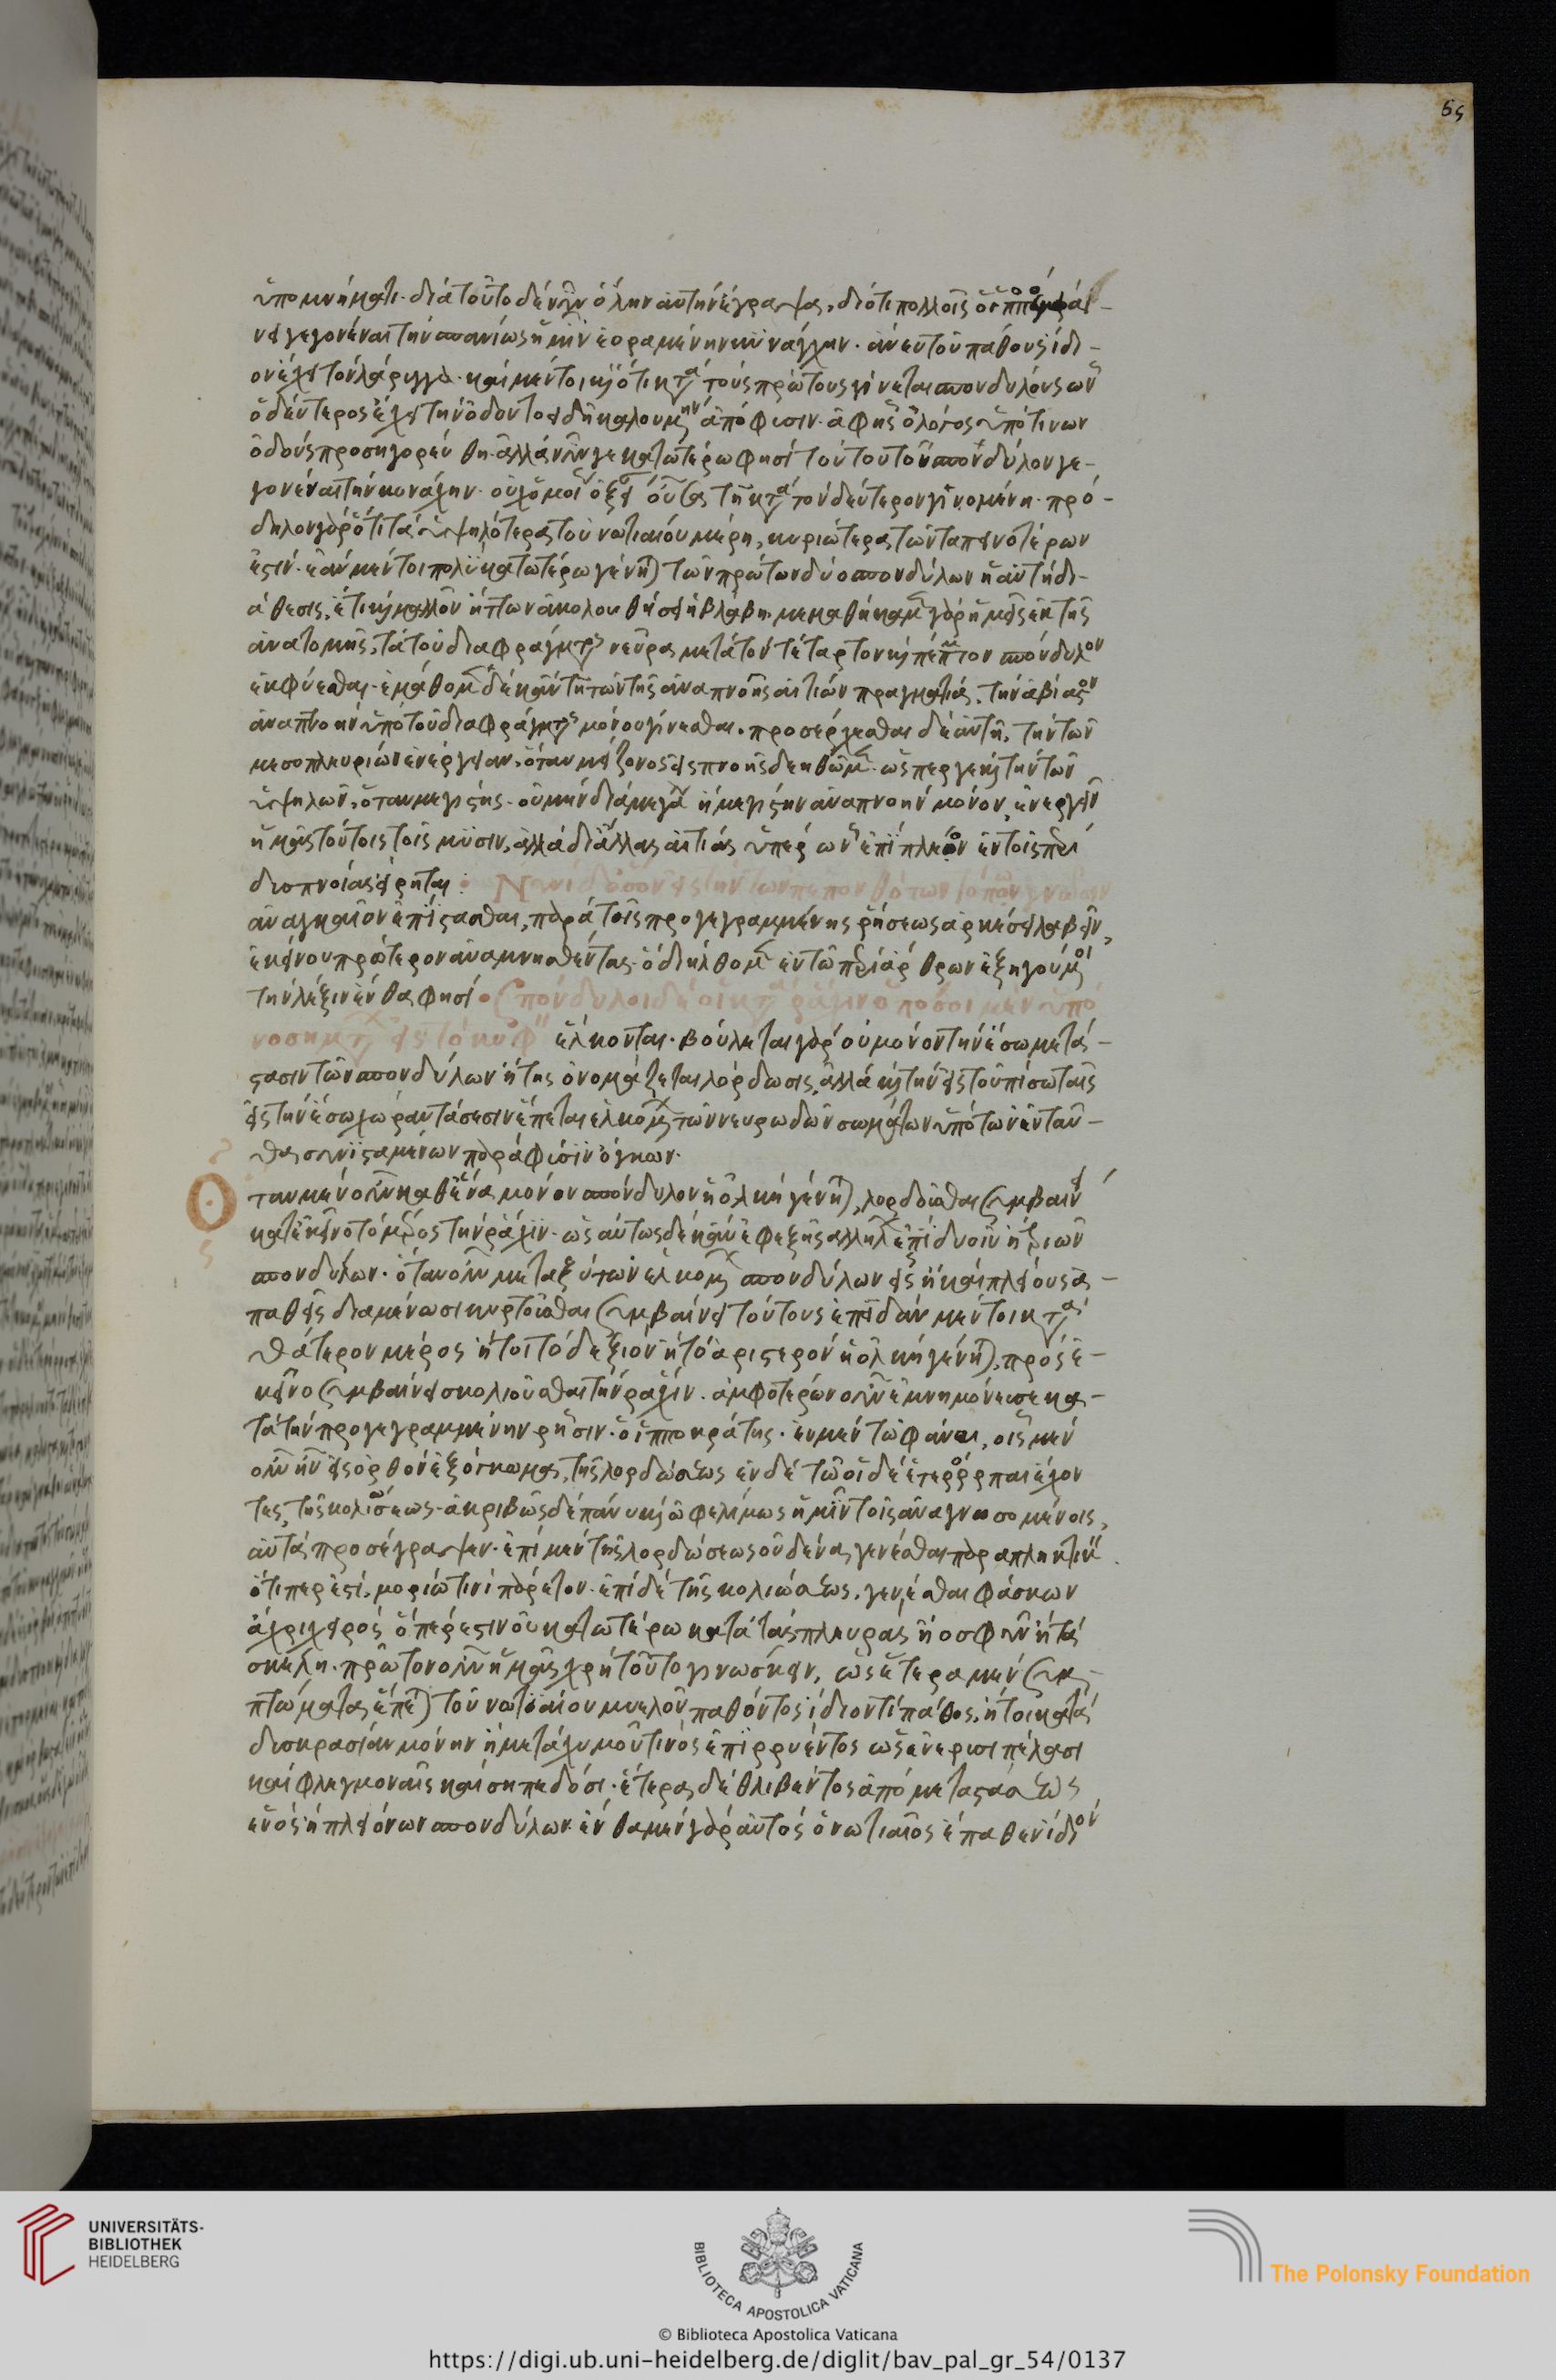 65
ὑπομνήματι. διὰ τοῦτο δὲ νῦν ὅλην αὐτὴν ἔγραψα, διότι πολλοῖς
γεγονέναι τὴν σπανίως ἡμῖν ἑοραμένην κυνάγχην. ἄνευ τοῦ πάθους ἴδι-
ον ἔχει τὸν λάρυγγα. καὶ μέντοι κὶ ὅτι κτὰ τοὺς πρώτους γίνεται σπονδύλους ὧν
ὁ δεύτερος ἔχει τὴν ὀδοντοειδῆ καλουμην ἀπόφυσιν. ἀφ' ἧς ὅλος ὑπό τινων
ὀδοὺς προσηγορεύθη. ἀλλὰ νῦν γε κατωτέρω φησὶ τούτου τοῦ σπονδύλου γε-
γονέναι τὴν κυνάχην. τῇ κτὰ τὸν δεύτερον γινομένη. πρό-
δηλον γὰρ ὅτι τὰ ὑψηλότερα τοῦ νωτιαίου μέρη, κυριώτερα τῶν ταπεινοτέρων
ἐστίν. ἐὰν μέντοι πολὺ κατωτέρω γένηται τῶν πρώτων δύο σπονδύλων ἡ αὐτὴ δι-
άθεσις, ἔτι κὶ μᾶλλον ἧττον ἀκολουθήσει ἡ βλάβη. μεμαθήκαμεν γὰρ ἡμεῖς ἐκ τῆς
ἀνατομῆς, τὰ τοῦ διαφράγματος νεῦρα μετὰ τὸν τέταρτον κὶ πέμπτον σπόνδυλον
ἐκφύεσθαι. ἐμάθομεν δὲ κἀν τῇ τῶν τῆς ἀναπνοῆς αἰτιῶν πραγματεία, τὴν ἀβίαστον
ἀναπνοὴν ὑπὸ τοῦ διαφράγματος μόνου γίνεσθαι. προσέρχεσθαι δὲ αὐτῇ, τὴν τῶν
μεσοπλευρίων ἐνέργειαν, ὅταν μείζονος εἰσπνοῆς δεηθῶμεν. ὥσπερ γε κὶ τὴν τῶν
ὑψηλῶν, ὅταν μεγίστης. οὐ μὴν διὰ μεγάλην ἢ μεγίστην ἀναπνοὴν μόνον, ἐνεργεῖν
ἡμᾶς τούτοις τοῖς μυσίν, ἀλλὰ δι' ἄλλας αἰτίας ὑπὲρ ὧν ἐπὶ πλέον ἐν τοῖς περὶ
δυσπνοίας εἴρηται:
ἀναγκαῖον ἐπίστασθαι, παρὰ τῆς προγεγραμμένης ῥήσεως ἀρκέσει λαβεῖν,
ἐκείνου πρότερον ἀναμνησθέντας. ὃ διήλθομεν ἐν τῷ περὶ ἄρθρων ἐξηγούμενοι
τὴν λέξιν ἔνθα φησί. Σπόνδυλοι δὲ οἱ κτὰ ῥάχιν ὁπόσοι μὲν ὑπὸ
νοσημάτων εἰς τὸ κυφὸν ἕλκονται. βούλεται γὰρ οὐ μόνον τὴν ἔσω μετά-
στασιν τῶν σπονδύλων ἥτις ὀνομάζεται λόρδωσις, ἀλλὰ κὶ τὴν εἰς τοὐπίσω ταῖς
εἰς τὴν ἔσω χώραν τάσεσιν ἕπεται ἑλκομένων τῶν νευρωδῶν σωμάτων ὑπὸ τῶν ἐνταῦ-
θα συνισταμένων παρὰ φύσιν ὄγκων.
Ὅταν μὲν οὖν καθ' ἕνα μόνον σπόνδυλον ἡ ὁλκὴ γένηται, λορδοῦσθαι συμβαίνει
κατ' ἐκεῖνο τὸ μέρος τὴν ῥάχιν. ὡσαύτως δὲ κἂν ἐφεξῆς ἀλλήλων ἐπὶ δυοῖν ἢ τριῶν
σπονδύλων. ὅταν οὖν μεταξὺ τῶν ἑλκομένων σπονδύλων εἷς ἢ καὶ πλείους ἀ-
παθεῖς διαμένωσι κυρτοῦσθαι συμβαίνει τούτους ἐπειδὰν μέντοι κτὰ
θάτερον μέρος ἤτοι τὸ δεξιὸν ἢ τὸ ἀριστερὸν ἡ ὁλκὴ γένηται, πρὸς ἐ-
κεῖνο συμβαίνει σκολιοῦσθαι τὴν ῥάχιν. ἀμφοτέρων οὖν ἐμνημόνευσε κα-
τὰ τὴν προγεγραμμένην ῥῆσιν. ὁ ἱπποκράτης. ἐν μὲν τῷ φάναι, οἷς μὲν
οὖν ἦν εἰς ὀρθὸν ἐξόγκωμα, τῆς λορδώσεως ἐν δὲ τῷ οἱ δὲ ἑτερόρροπα ἔχον
τες, τῆς κολιώσεως. ἀκριβῶς δὲ πάνυ κὶ ὠφελίμως ἡμῖν τοῖς ἀναγνωσομένοις,
αὐτὰ προσέγραψεν. ἐπὶ μὲν τῆς λορδώσεως οὐδένα γενέσθαι παραπληκτικόν
ὅτιπερ ἐστί, μορίω τινὶ πάρετον. ἐπὶ δὲ τῆς κολιώσεως, γενέσθαι φάσκων
ἄχρι χειρός ὅπερ ἐστὶν οὐ κατωτέρω κατὰ τὰς πλευρὰς ἢ ὀσφὺν ἢ τὰ
σκέλη. πρῶτον οὖν ἡμᾶς χρὴ τοῦτο γινώσκειν, ὡς ἕτερα μὲν συμ-
πτώματα ἕπεται τοῦ νωτιαίου μυελοῦ παθόντος ἴδιόν τι πάθος, ἤτοι κατὰ
δυσκρασίαν μόνην ἢ μετὰ χυμοῦ τινὸς ἐπιρρυέντος ὡς ἐν ἐρυσιπέλασι
καὶ φλεγμοναῖς καὶ σηπεδόσι. ἕτερα δὲ θλιβέντος ἀπὸ μεταστάσεως
ἑνὸς ἢ πλειόνων σπονδύλων. ἔνθα μὲν γὰρ αὐτὸς ὁ νωτιαῖος ἔπαθεν ἴδιον
UNIVERSITÄTS-
BIBLIOTHEK
HEIDELBERG
BIBLIOTECA APOSTOLICA VATICANA
The Polonsky Foundation
© Biblioteca Apostolica Vaticana
https://digi.ub.uni-heidelberg.de/diglit/bav_pal_gr_54/0137